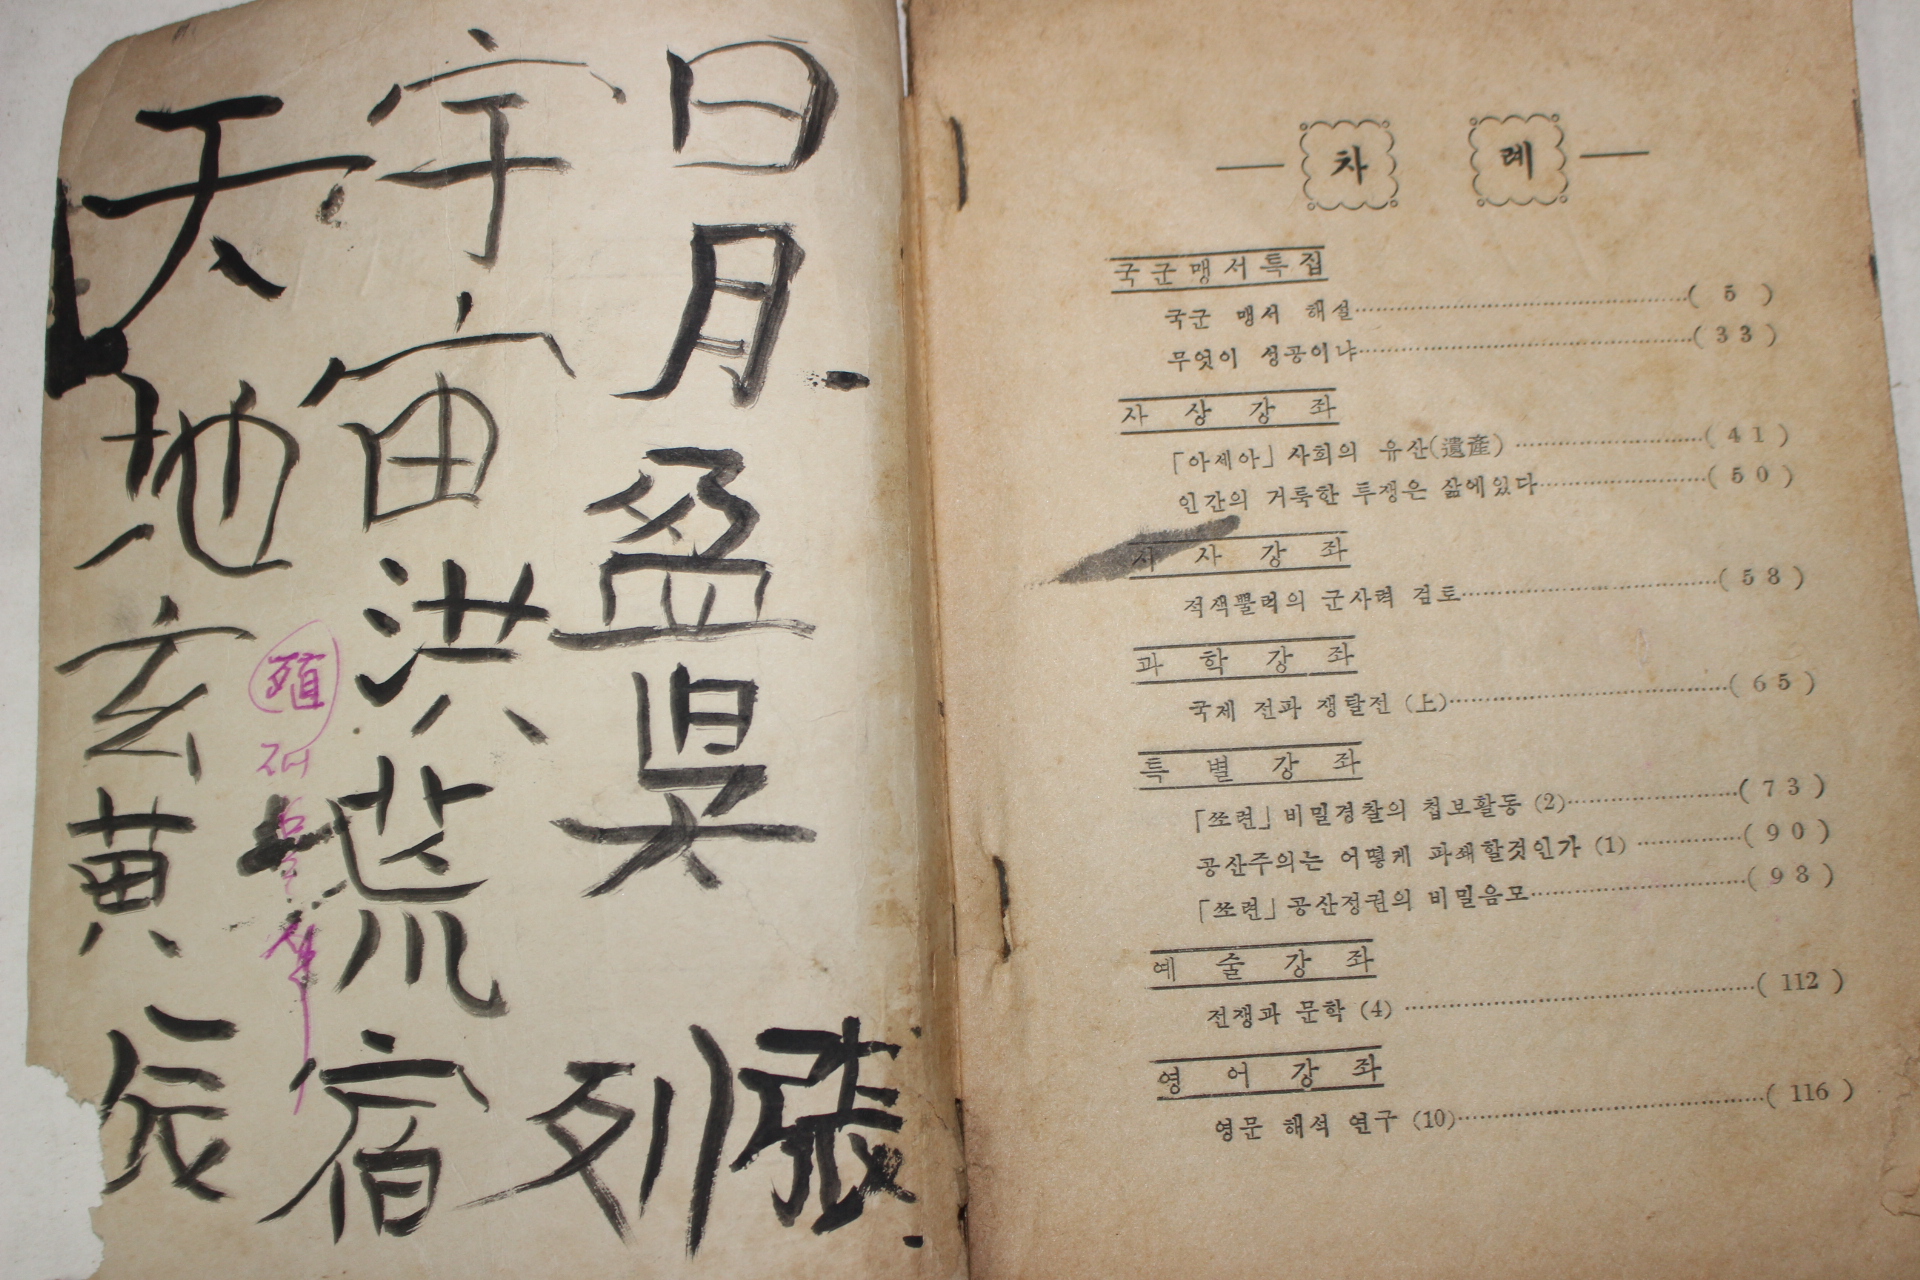 天地玄黃
宇宙洪荒
日月盈昃
辰宿列張
殖
재
차 례
국군맹서특집
국군 맹서 해설……(5)
무엇이 성공이냐……(33)
사상강좌
「아세아」사회의 유산(遺產)……(41)
인간의 거룩한 투쟁은 삶에있다……(50)
시사강좌
적색뿔럭의 군사력 검토……(58)
과학강좌
국제 전파 쟁탈전 (上)……(65)
특별강좌
「쏘련」비밀경찰의 첩보활동 (2)……(73)
공산주의는 어떻게 파쇄할것인가 (1)……(90)
「쏘련」공산정권의 비밀음모……(98)
예술강좌
전쟁과 문학 (4)……(112)
영어강좌
영문 해석 연구 (10)……(116)